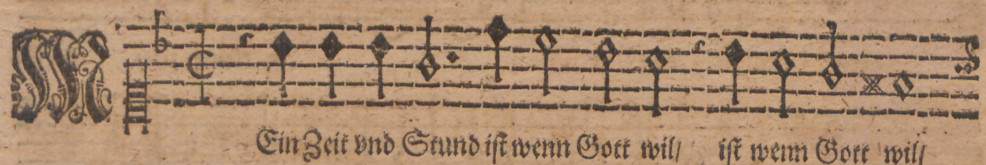 MEin Zeit vnd Stund ist wenn Gott wil/ ist wenn Gott wil/